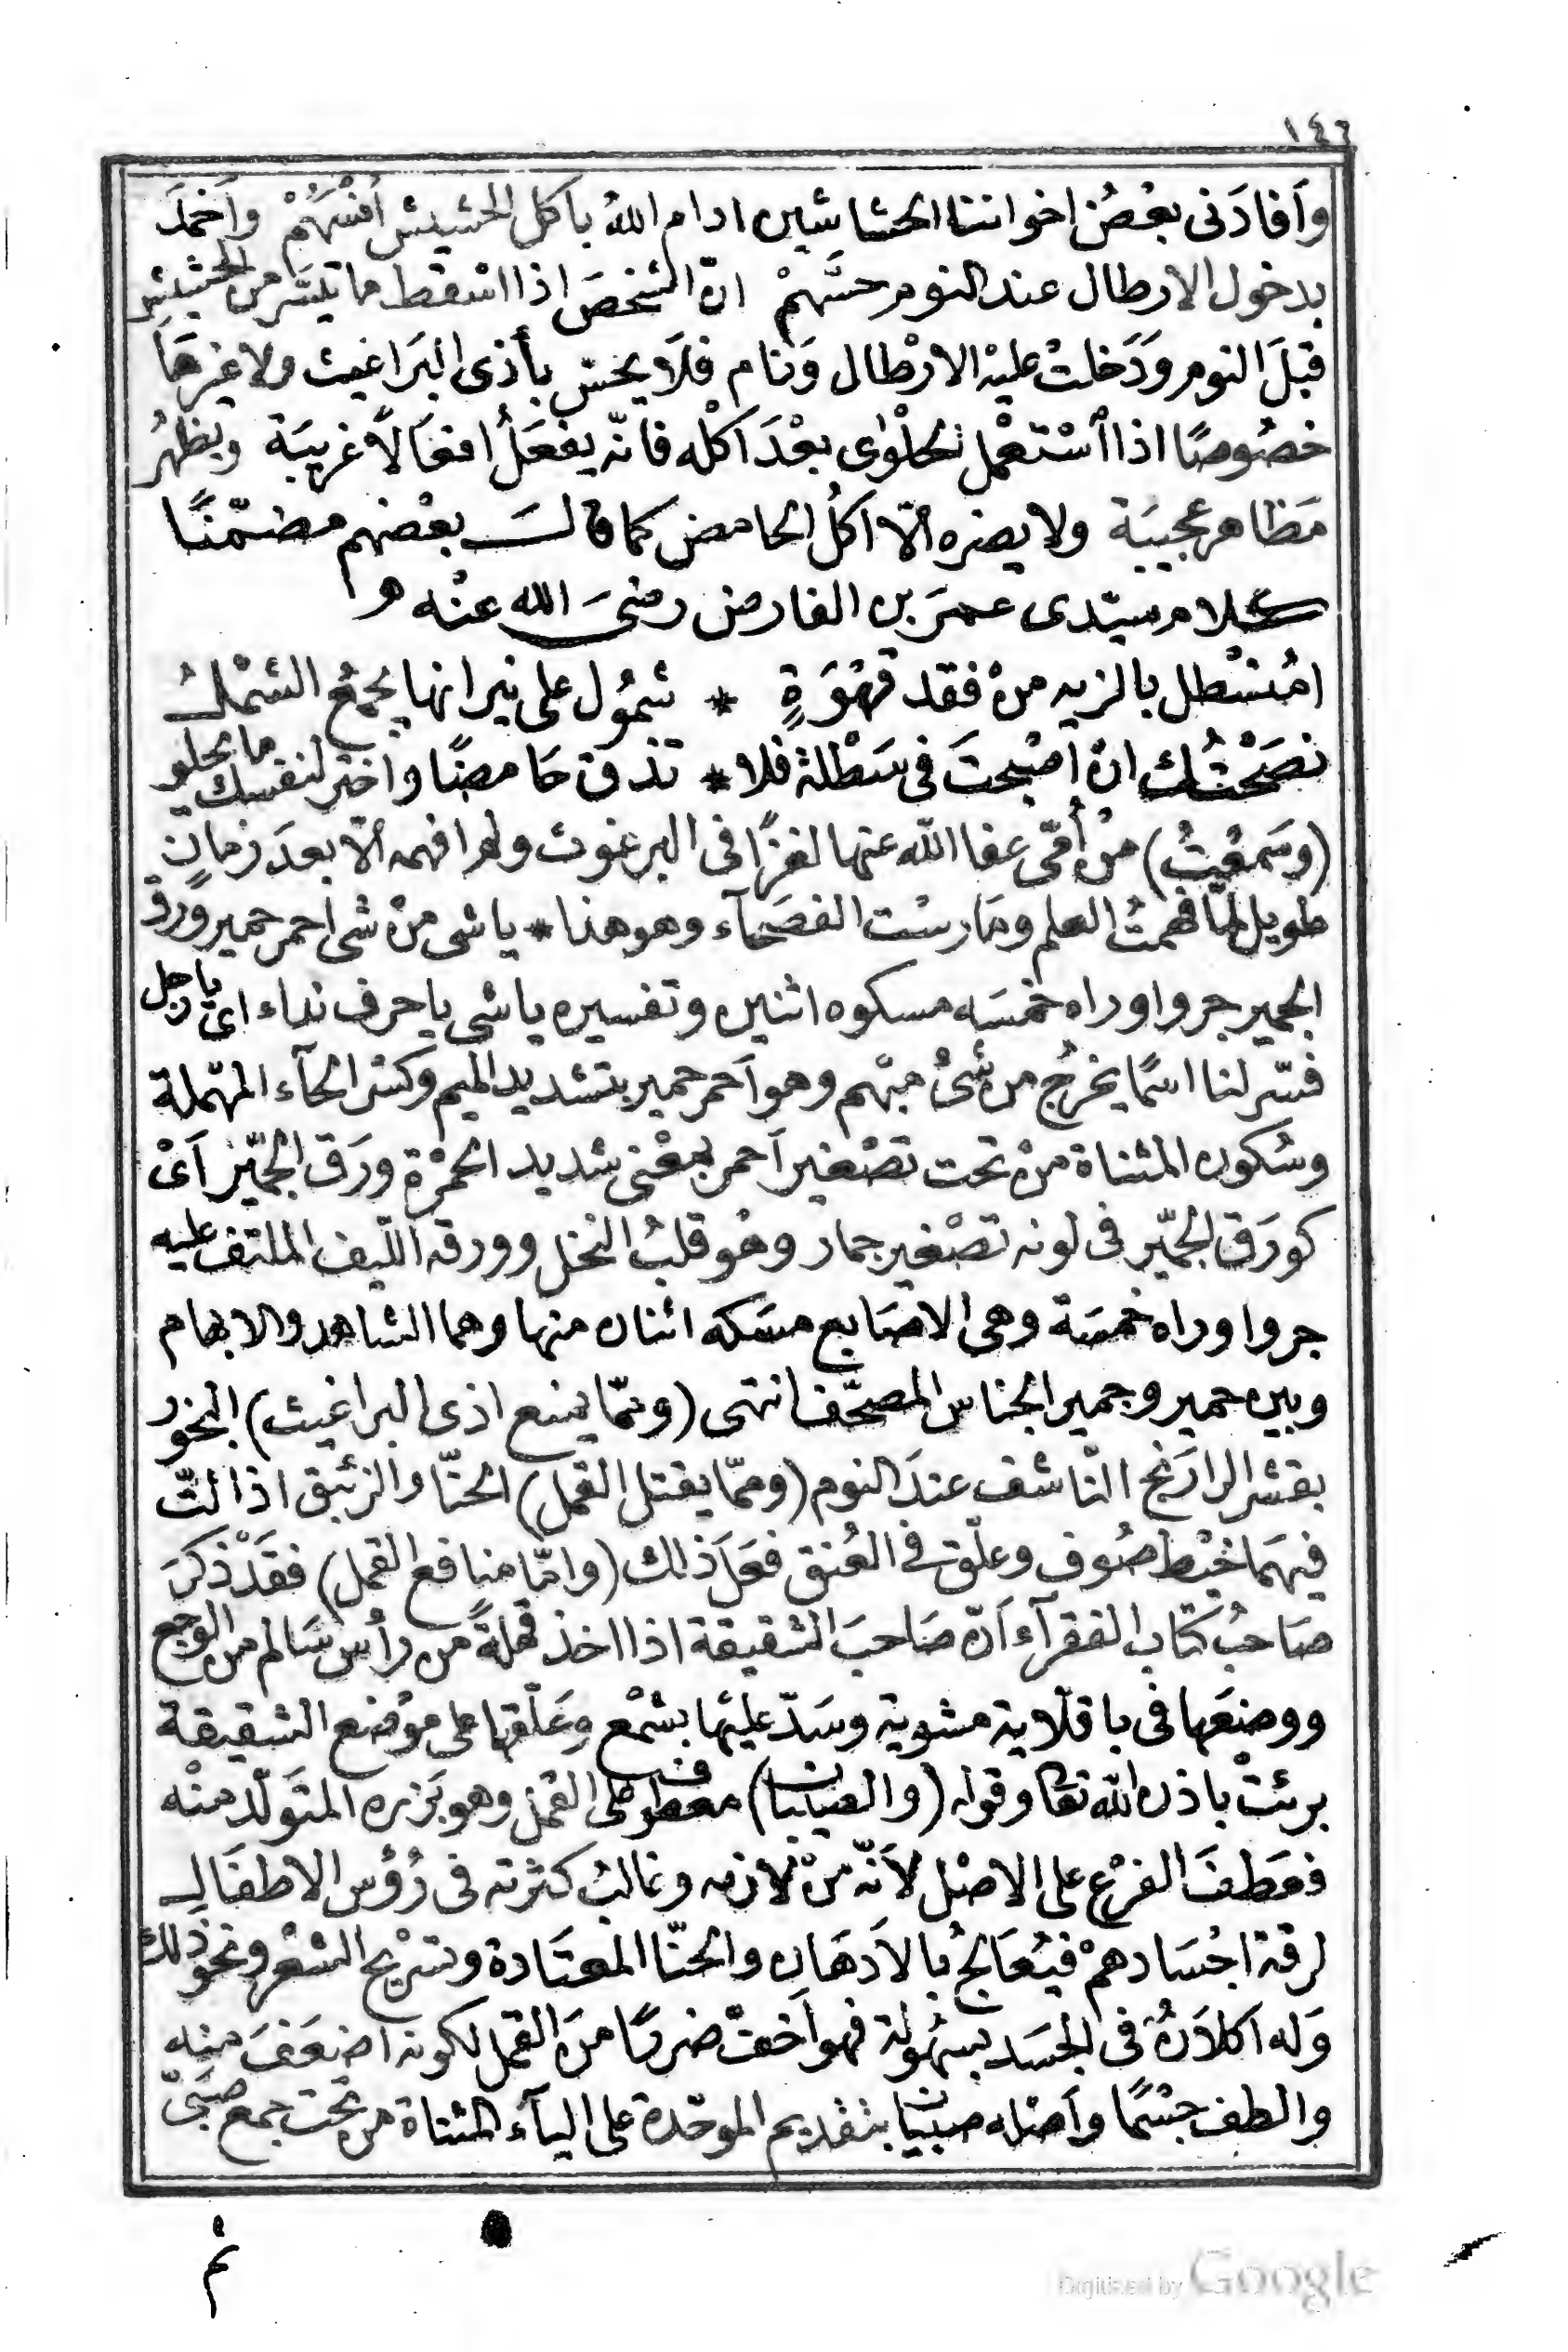 ١٤٦
وأَفادَنى بعْضُ اخواننا الحشاشين ادام اللهُ بأكل الحشيش أُنْسَهُمْ وأَخمَدَ
بدخول الارطال عند النوم حسَّهُمْ انّ الشخصَ اذا اسْقط ما تيسّر من الحشيش
قبلَ النوم ودَخلتْ عليْه الارْطال وَنام فلَا يحسّ بأذى البرَاغيث ولا غيْرهَا
خصُوصًا اذا اسْتعْمل الحلْوٰى بعْدَ اكْله فانّه يفعَلُ افعَالًا غريبَة ويظهرُ
مَظاهر عجيبَة ولا يضره الّا اكلُ الحامض كما قال بعْضهم مضمّنًا
كلام سيّدى عمرَ بن الفارض رضىَ الله عنْه و
امُنْسْطل بالزيه منْ فقد قهْوَةٍ * شمُول على نيرانها يجمَعُ الشمْلُ
نصَحْتُك انْ اصْبحتَ فى سَطْلة فلا * تذق حَامضًا واختر لنفسك ما يحلو
(وسَمعْتُ) منْ أُمّى عفا اللّه عنها لغزًا فى البرغوث ولم افهمه الّا بعدَ زمانٍ
طويل لمّا فهمتُ العلم ومَارسْت الفصَحَآء وهو هذا * يا شى منْ شى احمر حمير ورق
الجمير جروا وراه خمسَه مسكوه اثنين وتفسيره يا شى يا حرف نداء اى يا رجل
فسّر لنا اسمًا يخرُج من شئ مبْهم وهو احمر حمير بتشديد الميم وكسْر الحآء المهْملة
وسُكون المثناة منْ تحت تصْغير أحمر بمعْنى شديد الحمْرة ورَق الجمّير اَىْ
كورَق الجمّير فى لونه تصْغير جمار وهُو قلبُ النخل وورقه اللّيف الملتف عليه
جروا وراه خمسَة وهى الاصَابع مسَكه اثنان منها وهما الشاهد والابهام
وبين حمير وجمير الجناس المصحّف انتهى (وممّا يمنع اذى البراغيث) البخور
بقشر الرارنج النّاشف عندَ النوم (وممّا يقتل القمل) الحنّا والزئبق اذا لتّ
فيهمَا خيْط صُوف وعلّق فى العُنق فعَل ذلك (وامّا منافع القمل) فقَدْ ذكرَ
صَاحبُ كتاب الفقرآء اَنّ صَاحبَ الشقيقة اذا اخذ قملةً من رأْس سَالم من الوجع
ووضعَها فى باقلّاية مشوية وسَدّ عليْها بشمْع وعَلّقها على موْضع الشقيقة
برئتْ باذن اللّه تعالى وقوله (والصيبان) معطوف على القمل وهو بزره المتَولّد منْه
فعَطفَ الفرْع على الاصْل لأنّه منْ لازمه وغالبُ كثرته فى رُؤْس الاطفَال
لرقة اجْسَادهمْ فيُعَالجُ بالاَدهَان والحنّا المعتَادة وتسْريح الشعْر ونحْو ذلك
وَله اكلَانٌ فى الجسَد بسهُولة فهو اَخفّ ضررًا منَ القمل لكونه اضعَفَ منه
والطف جسْمًا واَصْله صبيان بتقديم الموحّدة على اليآء المثناة من تحت جمع صبَىّ
ثم
Digitized by Google